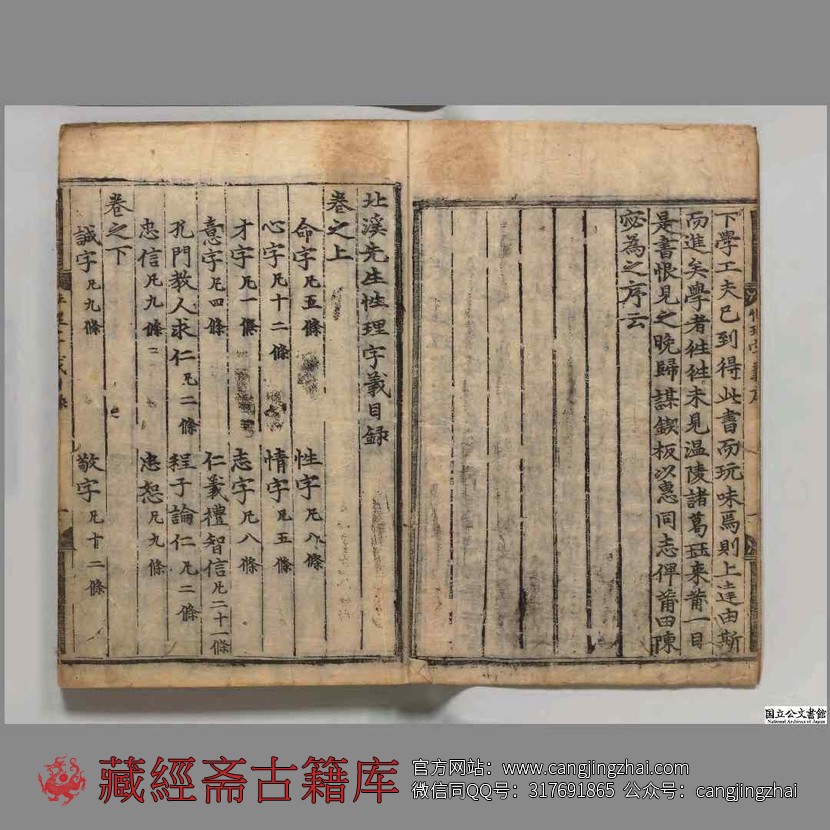 下學工夫已到得此書而玩味焉則上達由斯
而進矣學者徃徃未見温陵諸葛珏来莆一目
是書恨見之晚歸謀鋟板以惠同志俾莆田陳
宓為之序云
北溪先生性理字義目録
卷之上
命字凡五條 性字凡八條
心字凡十二條 情字凡五條
才字凡一條 志字凡八條
意字凡四條 仁義禮智信凡二十一條
孔門教人求仁凡二條 程子論仁凡二條
忠信凡九條 忠恕凡九條
卷之下
誠字凡九條 敬字凡十二條
国立公文書館
National Archives of Japan
藏經斋古籍库
官方网站：www.cangjingzhai.com
微信同QQ号：317691865 公众号：cangjingzhai